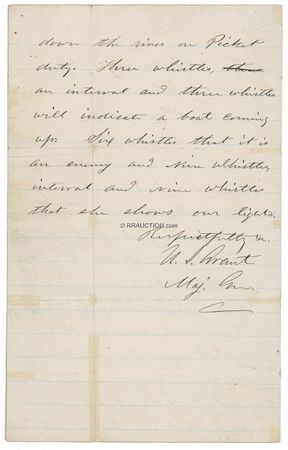 down the river on Picket
duty. Three whistles,
an interval and three whistles
will indicate a boat coming
up. Six whistles that it is
an enemy and Nine Whistles,
interval and nine whistles
that she shows our lights.
© RRAUCTION.com
Respectfully &c.
U. S. Grant
Maj. Gen.